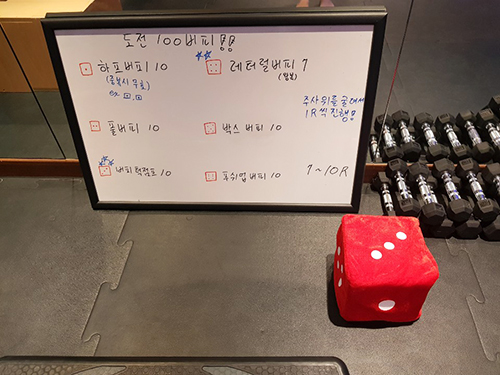 도전 100버피
하프버피 10
(중복시 무효)
ex
레터럴버피 7
(왕복)
주사위를 굴려서
1R씩 진행
풀버피 10
박스 버피 10
버피턱점프 10
푸쉬업버피 10
7~10R